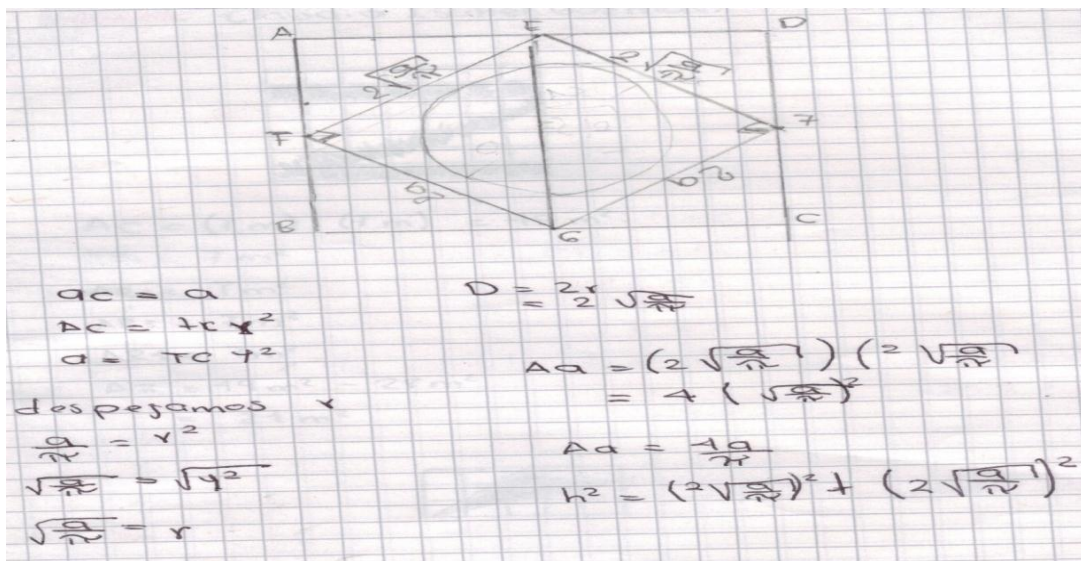 A E D
2√a/π 2√a/π
T 7
B G C
ac = a
Ac = πr²
a = πr²
despejamos r
a/π = r²
√a/π = √r²
√a/π = r
D = 2r
= 2 √a/π
Aa = (2 √a/π) (2 √a/π
= 4 (√a/π)²
Aa = 4a/π
h² = (2√a/π)² + (2√a/π)²